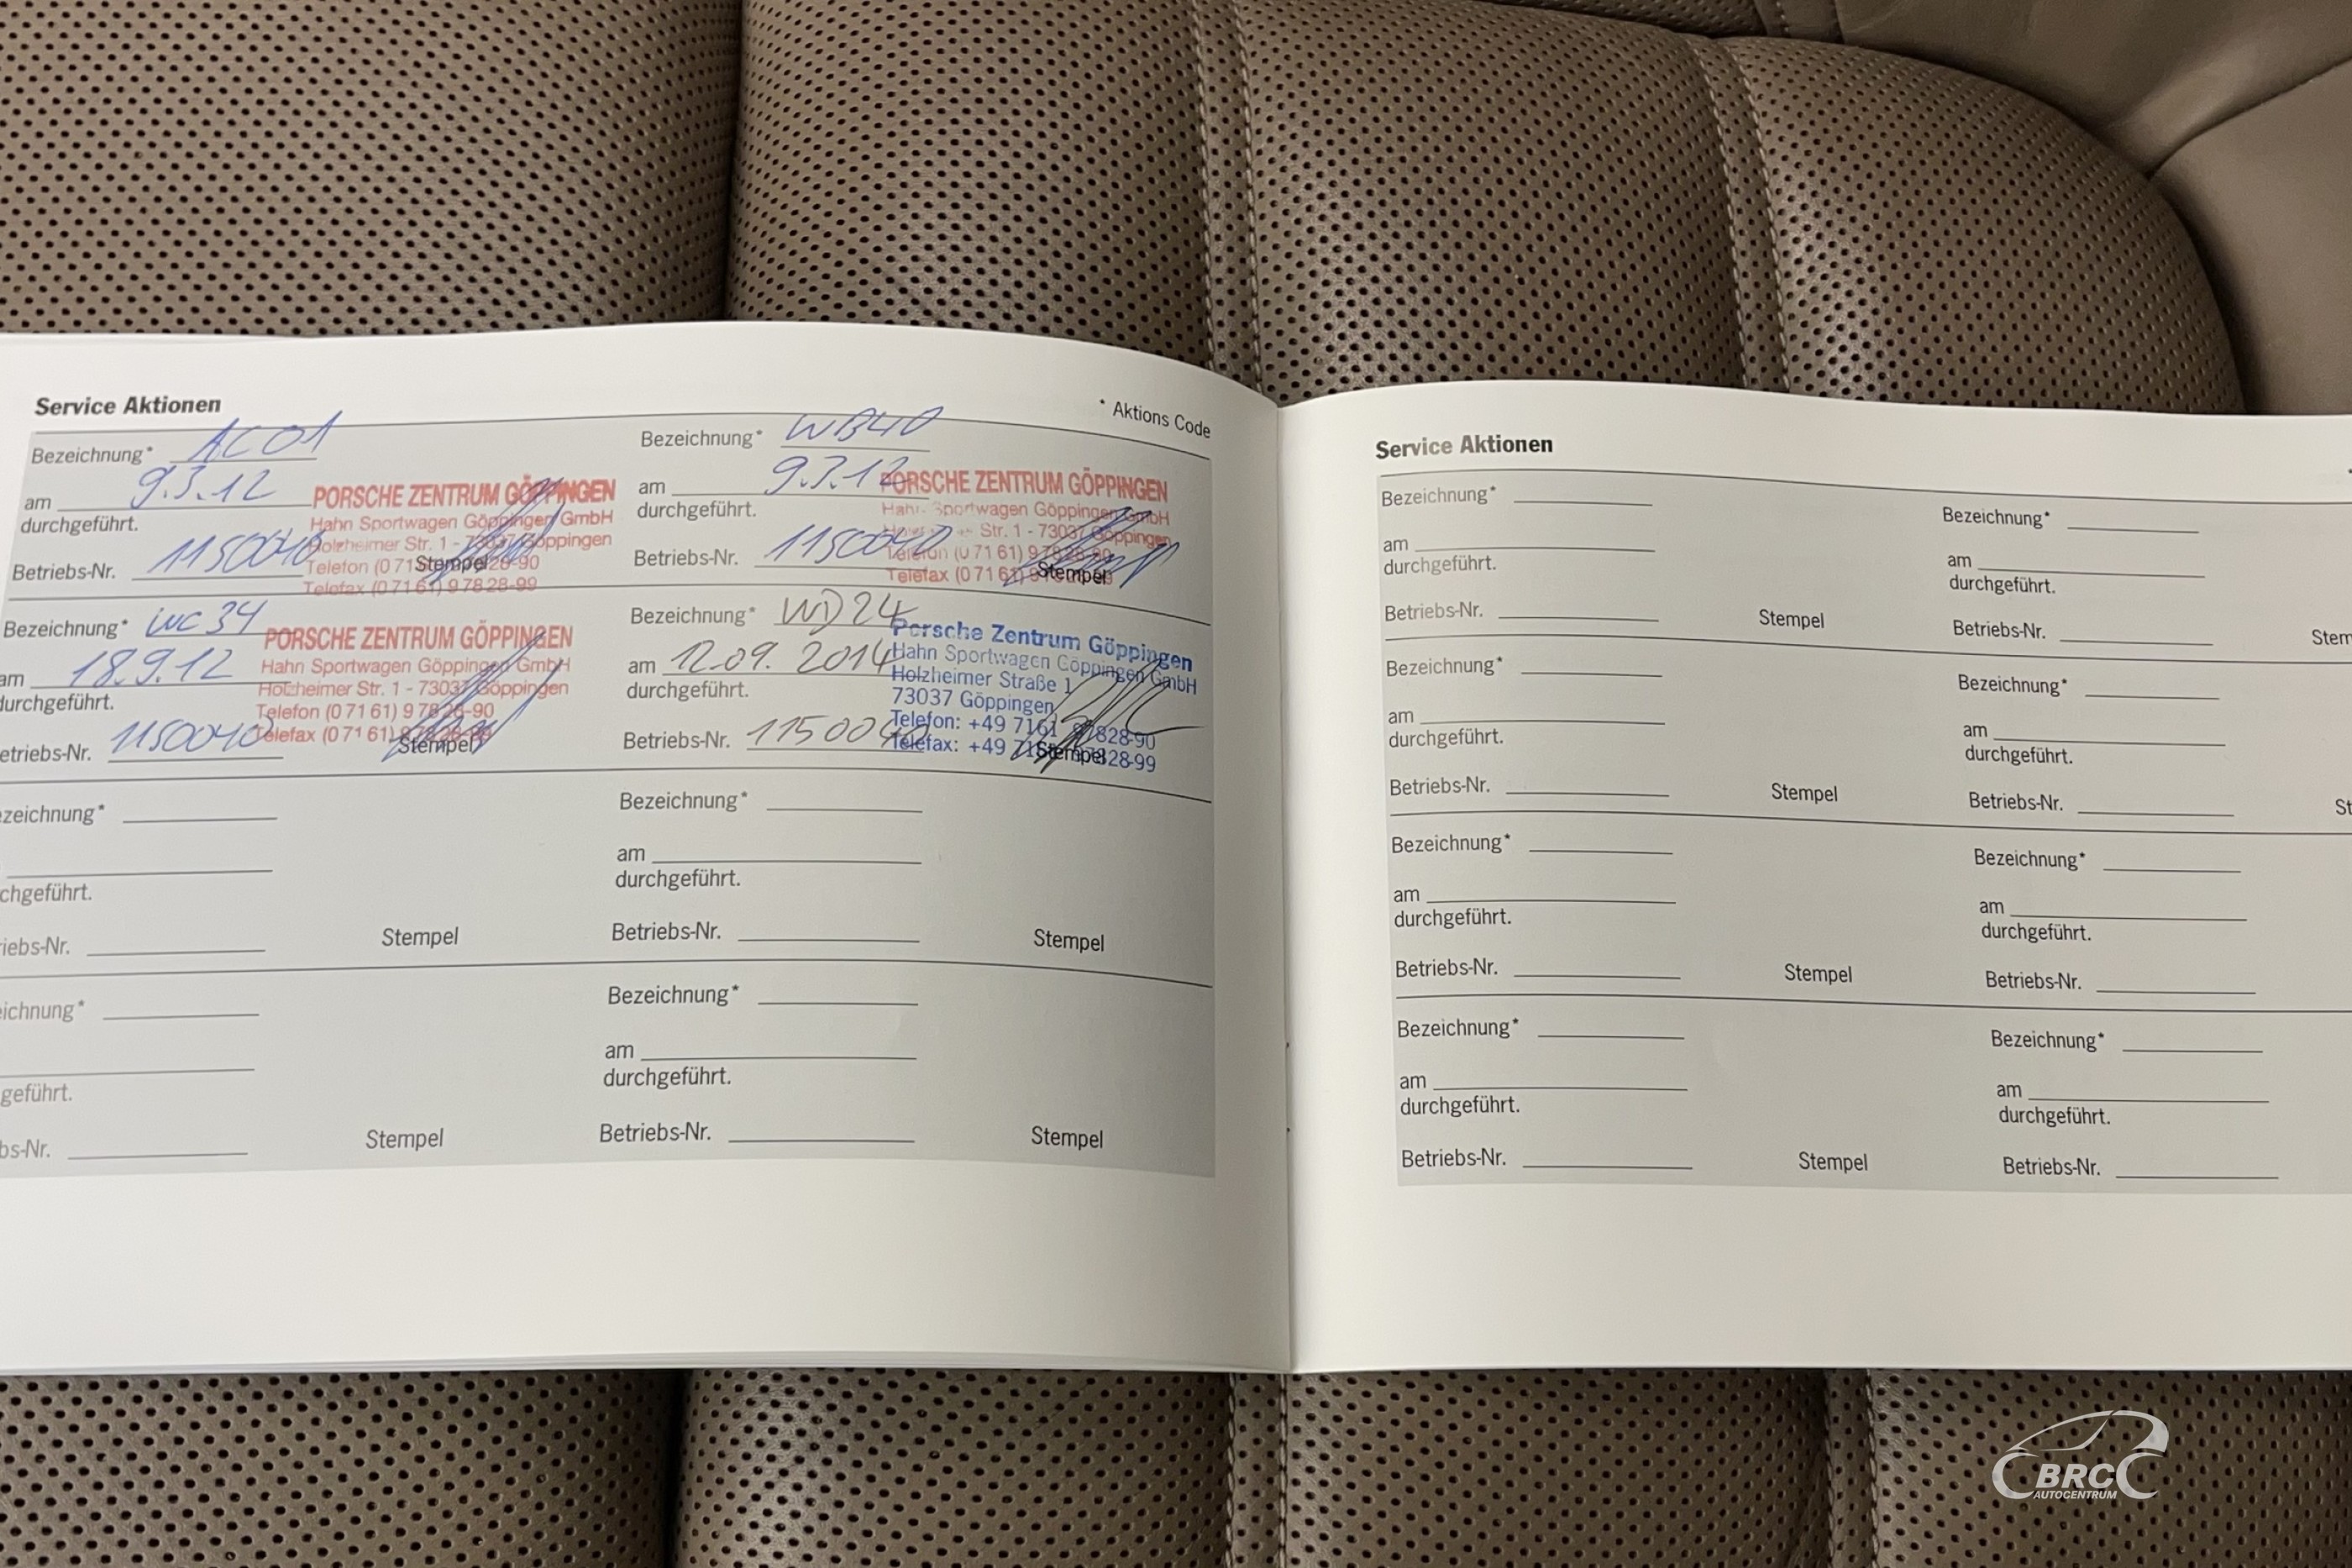 Service Aktionen
* Aktions Code
Bezeichnung* AC01
am 9.3.12
durchgeführt.
Betriebs-Nr. 1150040
PORSCHE ZENTRUM GÖPPINGEN
Hahn Sportwagen Göppingen GmbH
Holzheimer Str. 1 - 73037 Göppingen
Telefon (0 71 28-90
Stempel
Telefax (0 71 61) 9 78 28-99
Bezeichnung* WB40
am 9.3.12
durchgeführt.
Betriebs-Nr. 1150040
PORSCHE ZENTRUM GÖPPINGEN
Hahn Sportwagen Göppingen GmbH
Str. 1 - 73037 Göppingen
Telefon (0 71 61) 9 78 28-90
Telefax (0 71 61)
Stempel
Bezeichnung* WC34
am 18.9.12
durchgeführt.
etriebs-Nr. 1150040
PORSCHE ZENTRUM GÖPPINGEN
Hahn Sportwagen Göppingen GmbH
Holzheimer Str. 1 - 73037 Göppingen
Telefon (0 71 61) 9 78 28-90
Telefax (0 71 61)
Stempel
Bezeichnung* WD24
am 12.09.2014
durchgeführt.
Betriebs-Nr. 1150040
Porsche Zentrum Göppingen
Hahn Sportwagen Göppingen GmbH
Holzheimer Straße 1
73037 Göppingen
Telefon: +49 7161 97828-90
Telefax: +49 7161 97828-99
Stempel
zeichnung*
chgeführt.
iebs-Nr.
Stempel
Bezeichnung*
am
durchgeführt.
Betriebs-Nr.
Stempel
ichnung*
geführt.
bs-Nr.
Stempel
Bezeichnung*
am
durchgeführt.
Betriebs-Nr.
Stempel
Service Aktionen
Bezeichnung*
am
durchgeführt.
Betriebs-Nr.
Stempel
Bezeichnung*
am
durchgeführt.
Betriebs-Nr.
Stem
Bezeichnung*
am
durchgeführt.
Betriebs-Nr.
Stempel
Bezeichnung*
am
durchgeführt.
Betriebs-Nr.
St
Bezeichnung*
am
durchgeführt.
Betriebs-Nr.
Stempel
Bezeichnung*
am
durchgeführt.
Betriebs-Nr.
Bezeichnung*
am
durchgeführt.
Betriebs-Nr.
Stempel
Bezeichnung*
am
durchgeführt.
Betriebs-Nr.
BRC
AUTOCENTRUM